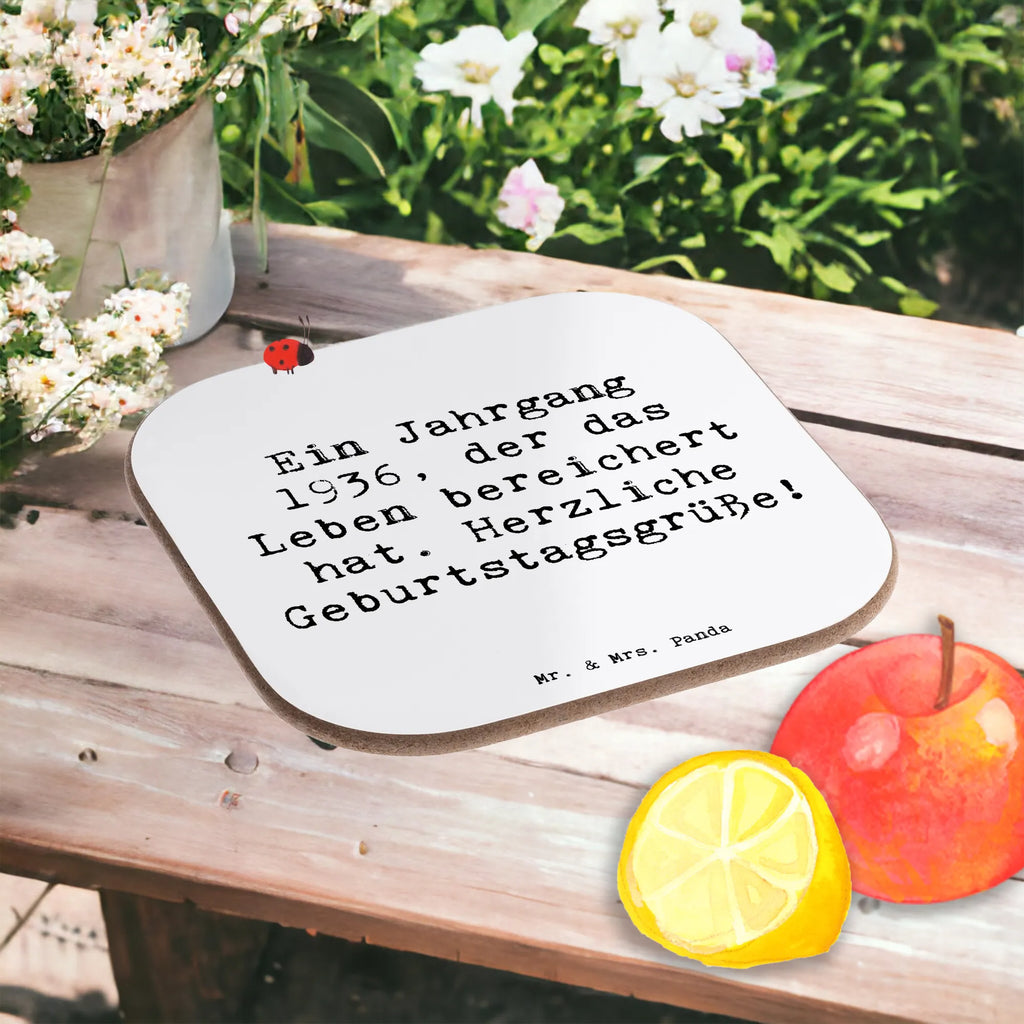 Ein Jahrgang
1936, der das
Leben bereichert
hat. Herzliche
Geburtstagsgrüße!
Mr. & Mrs. Panda